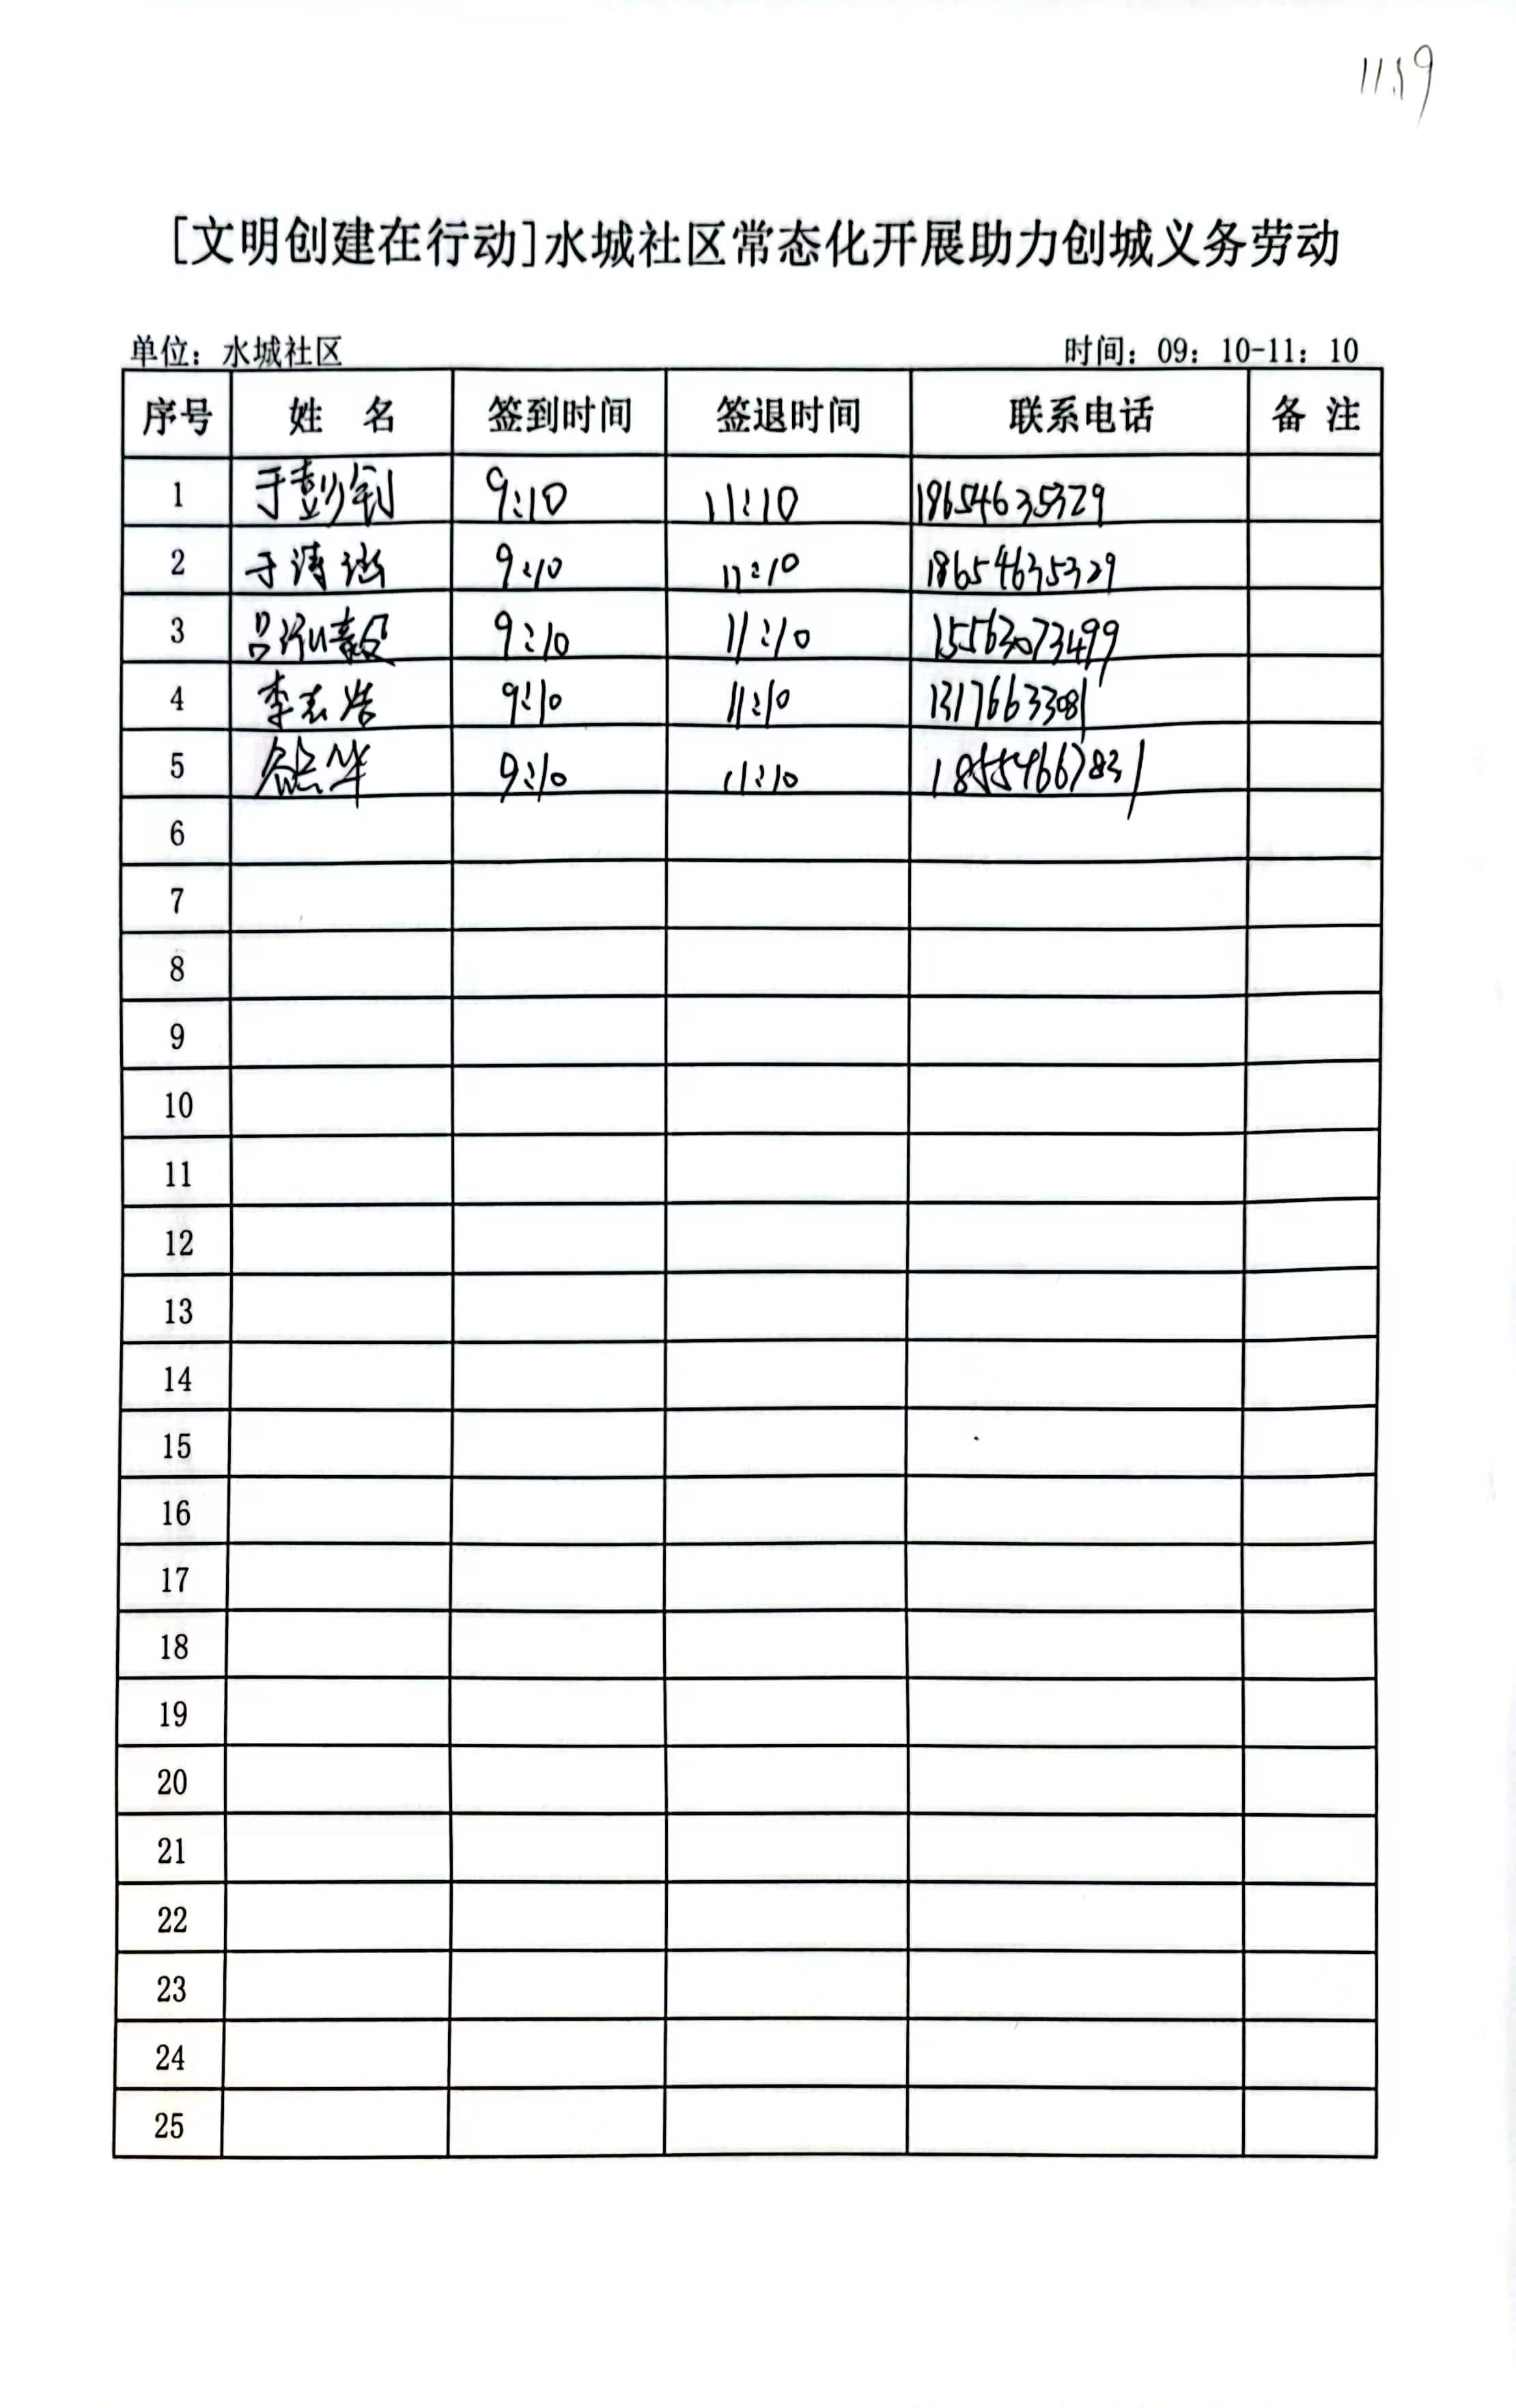 11.19
[文明创建在行动]水城社区常态化开展助力创城义务劳动
单位：水城社区 时间：09：10-11：10
序号 姓 名 签到时间 签退时间 联系电话 备 注
1 于彭钊 9:10 11:10 18654635329
2 于清 9:10 11:10 18654635329
3 吕 9:10 11:10 15563073499
4 李志浩 9:10 11:10 13176633081
5 华 9:10 11:10 18554667831
6
7
8
9
10
11
12
13
14
15
16
17
18
19
20
21
22
23
24
25